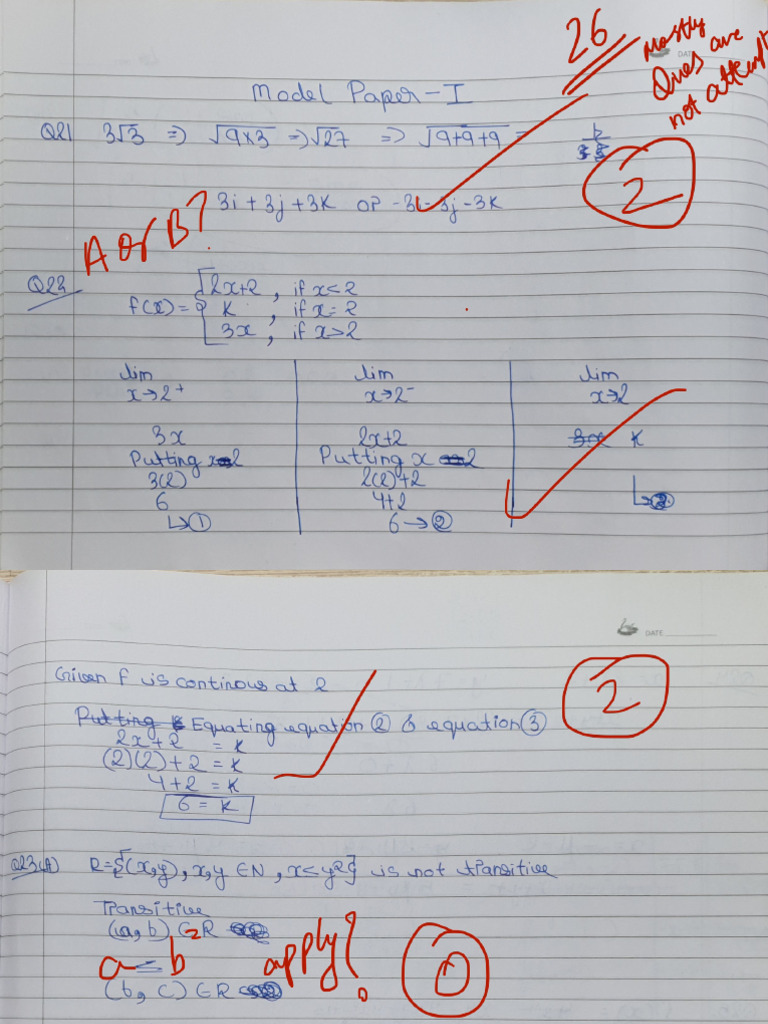 26
mostly
Ques are
not attempt
DATE
Model Paper - I
Q21 3√3 => √9×3 => √27 => √9+9+9 =
2
3i + 3j + 3k or -3i-3j-3k
A or B?
Q22
f(x) = { 2x+2 , if x<2
k , if x=2
3x , if x>2
lim lim lim
x→2+ x→2- x→2
3x 2x+2 k
Putting x 2 Putting x 2
3(2) 2(2)+2
6 4+2
↳① 6→②
DATE
Given f is continous at 2
2
Putting k Equating equation ② & equation ③
2x+2 = k
(2)(2)+2 = k
4+2 = k
6 = k
Q23(A) R={(x,y), x,y ∈N, x≤y²} is not transitive
Transitive
(a, b) ∈ R
a ≤ b apply? 0
(b, c) ∈R